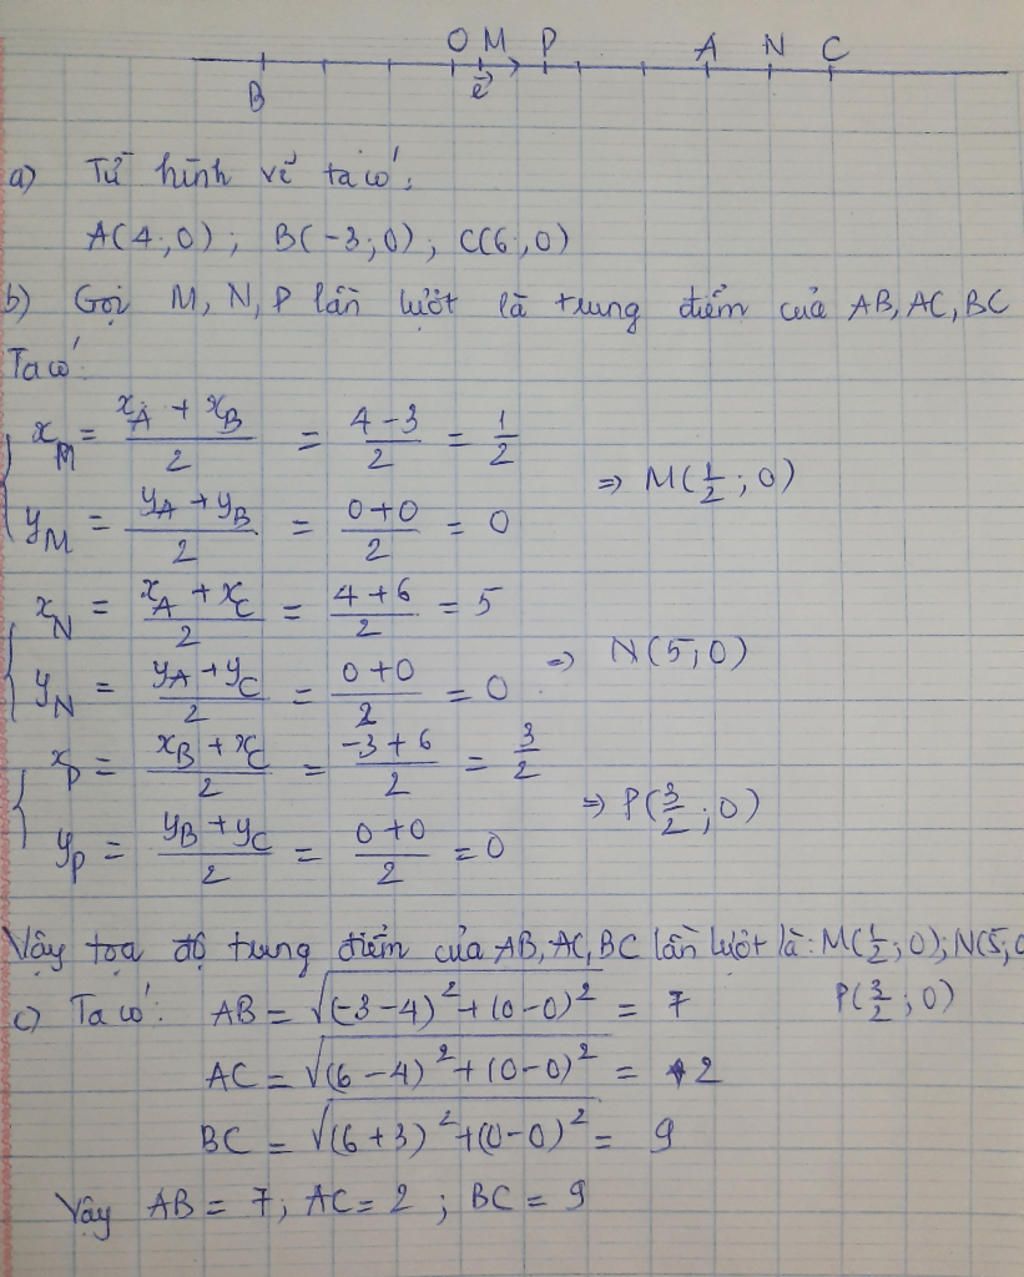 O M P A N C
B e⃗
a) Từ hình vẽ ta có:
A(4;0); B(-3;0); C(6;0)
b) Gọi M, N, P lần lượt là trung điểm của AB, AC, BC
Ta có:
x_M = (x_A + x_B)/2 = (4-3)/2 = 1/2
⇒ M(1/2;0)
y_M = (y_A + y_B)/2 = (0+0)/2 = 0
x_N = (x_A + x_C)/2 = (4+6)/2 = 5
⇒ N(5;0)
y_N = (y_A + y_C)/2 = (0+0)/2 = 0
x_P = (x_B + x_C)/2 = (-3+6)/2 = 3/2
⇒ P(3/2;0)
y_P = (y_B + y_C)/2 = (0+0)/2 = 0
Vậy tọa độ trung điểm của AB, AC, BC lần lượt là: M(1/2;0); N(5;0
P(3/2;0)
c) Ta có: AB = √((-3-4)² + (0-0)²) = 7
AC = √((6-4)² + (0-0)²) = 2
BC = √((6+3)² + (0-0)²) = 9
Vậy AB = 7; AC = 2; BC = 9